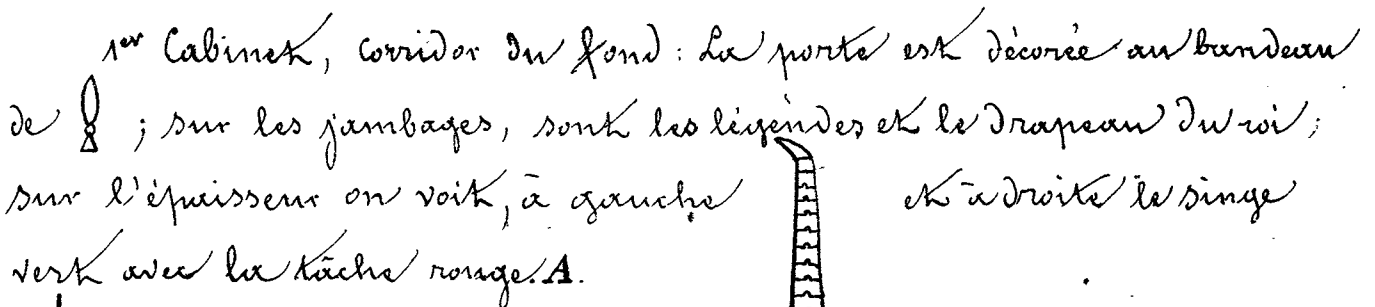 1er Cabinet, corridor du fond : La porte est décorée au bandeau
de ; sur les jambages, sont les légendes et le drapeau du roi ;
sur l'épaisseur on voit, à gauche et à droite le singe
vert avec la tâche rouge. A.